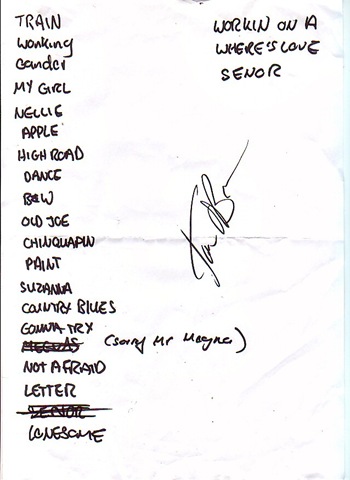 TRAIN
WORKIN ON A
Working
WHERE'S LOVE
Gander
SENOR
MY GIRL
NELLIE
APPLE
HIGH ROAD
DANCE
B&W
OLD JOE
CHINQUAPIN
PAINT
SUZANNA
COUNTRY BLUES
GONNA TRY
(Sorry Mr Meegras)
NOT AFRAID
LETTER
SENOR
LONESOME